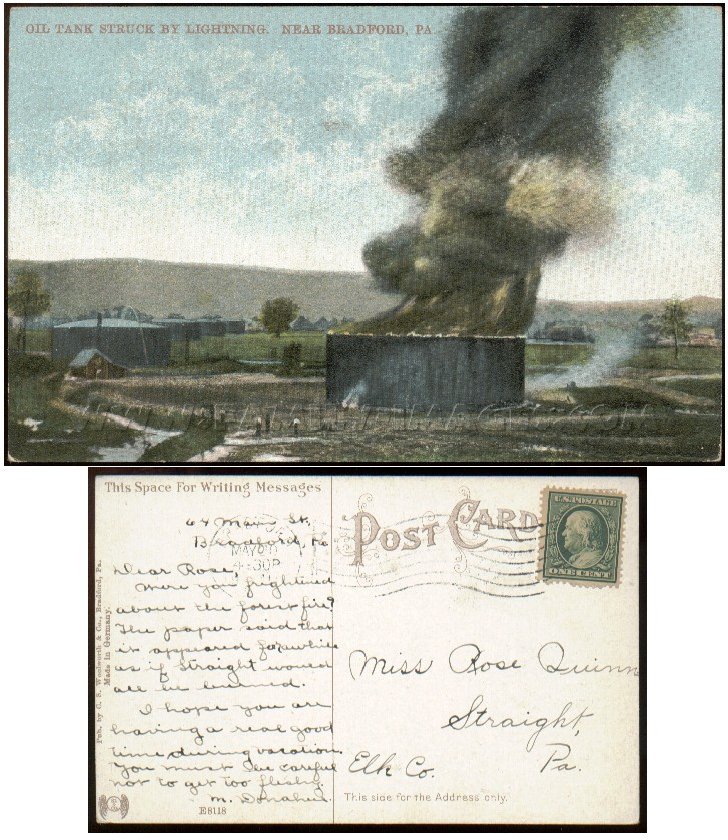 OIL TANK STRUCK BY LIGHTNING. NEAR BRADFORD, PA.
This Space For Writing Messages
64 Main St.
Bradford, Pa
MAY
4-30P
Dear Rose,
Were you frightened
about the forest fire?
The paper said that
it appeared for while
as if Straight would
all be burned.
I hope you are
having a real good
time during vacation.
You must be careful
not to get too fleshy
M. Donahue
E8118
Pub. by C. S. Woolworth & Co., Bradford, Pa.
Made in Germany.
POST CARD
U.S. POSTAGE
ONE CENT
Miss Rose Quinn
Straight,
Elk Co.
Pa.
This side for the Address only.